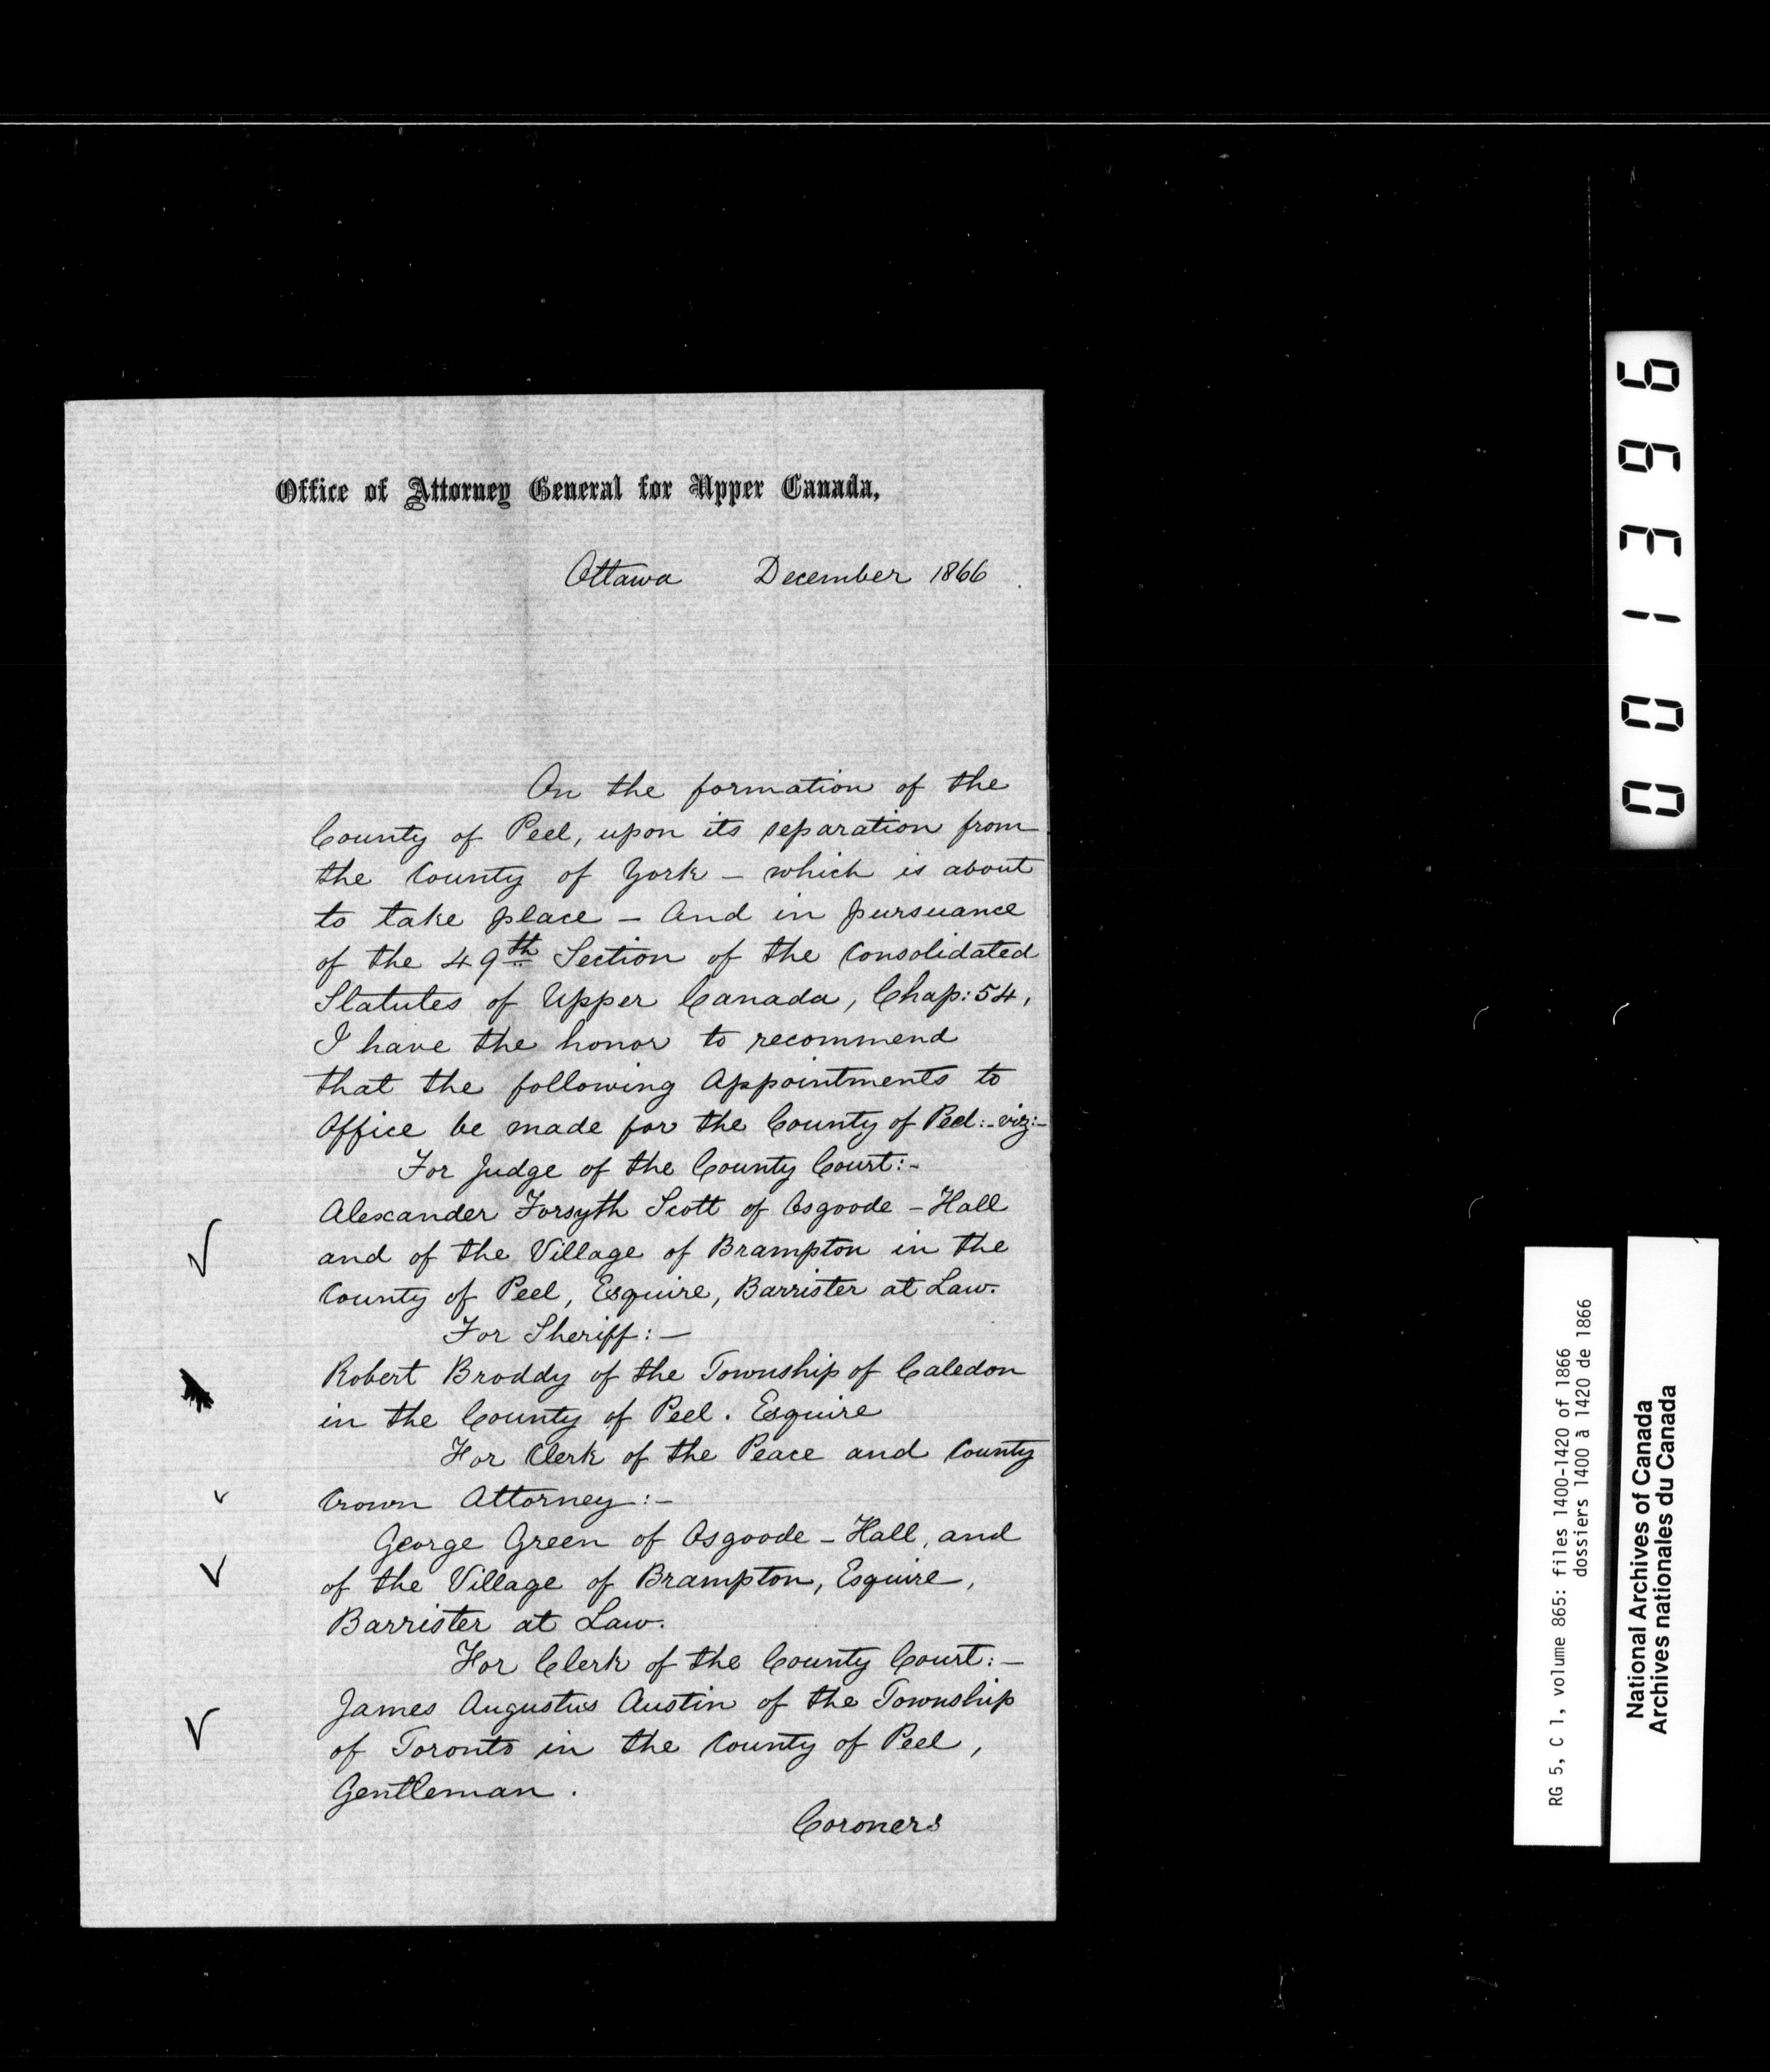 Office of Attorney General for Upper Canada,
Ottawa December 1866
On the formation of the
County of Peel, upon its separation from
the County of York – which is about
to take place – And in pursuance
of the 49th Section of the Consolidated
Statutes of Upper Canada, Chap: 54,
I have the honor to recommend
that the following Appointments to
Office be made for the County of Peel:- viz:-
For Judge of the County Court:-
Alexander Forsyth Scott of Osgoode – Hall
and of the Village of Brampton in the
County of Peel, Esquire, Barrister at Law.
For Sheriff: –
Robert Broddy of the Township of Caledon
in the County of Peel. Esquire
For Clerk of the Peace and County
Crown Attorney:-
George Green of Osgoode – Hall, and
of the Village of Brampton, Esquire,
Barrister at Law.
For Clerk of the County Court: –
James Augustus Austin of the Township
of Toronto in the County of Peel,
Gentleman.
Coroners
001396
RG 5, C 1, volume 865: files 1400-1420 of 1866
dossiers 1400 à 1420 de 1866
National Archives of Canada
Archives nationales du Canada